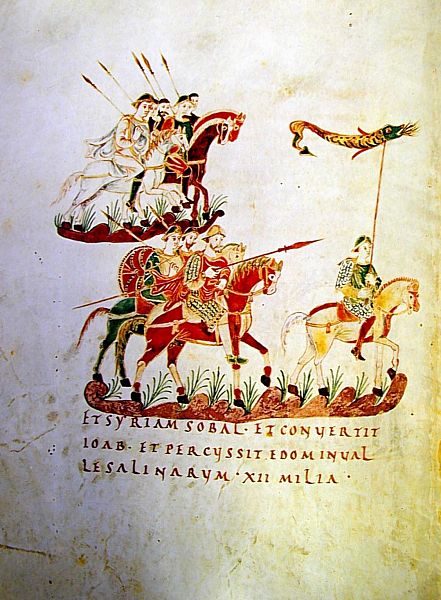 ETSYRIAM SOBAL · ET CONVERTIT
IOAB · ET PERCVSSIT EDOM IN VAL
LE SALINARVM · XII MILIA ·